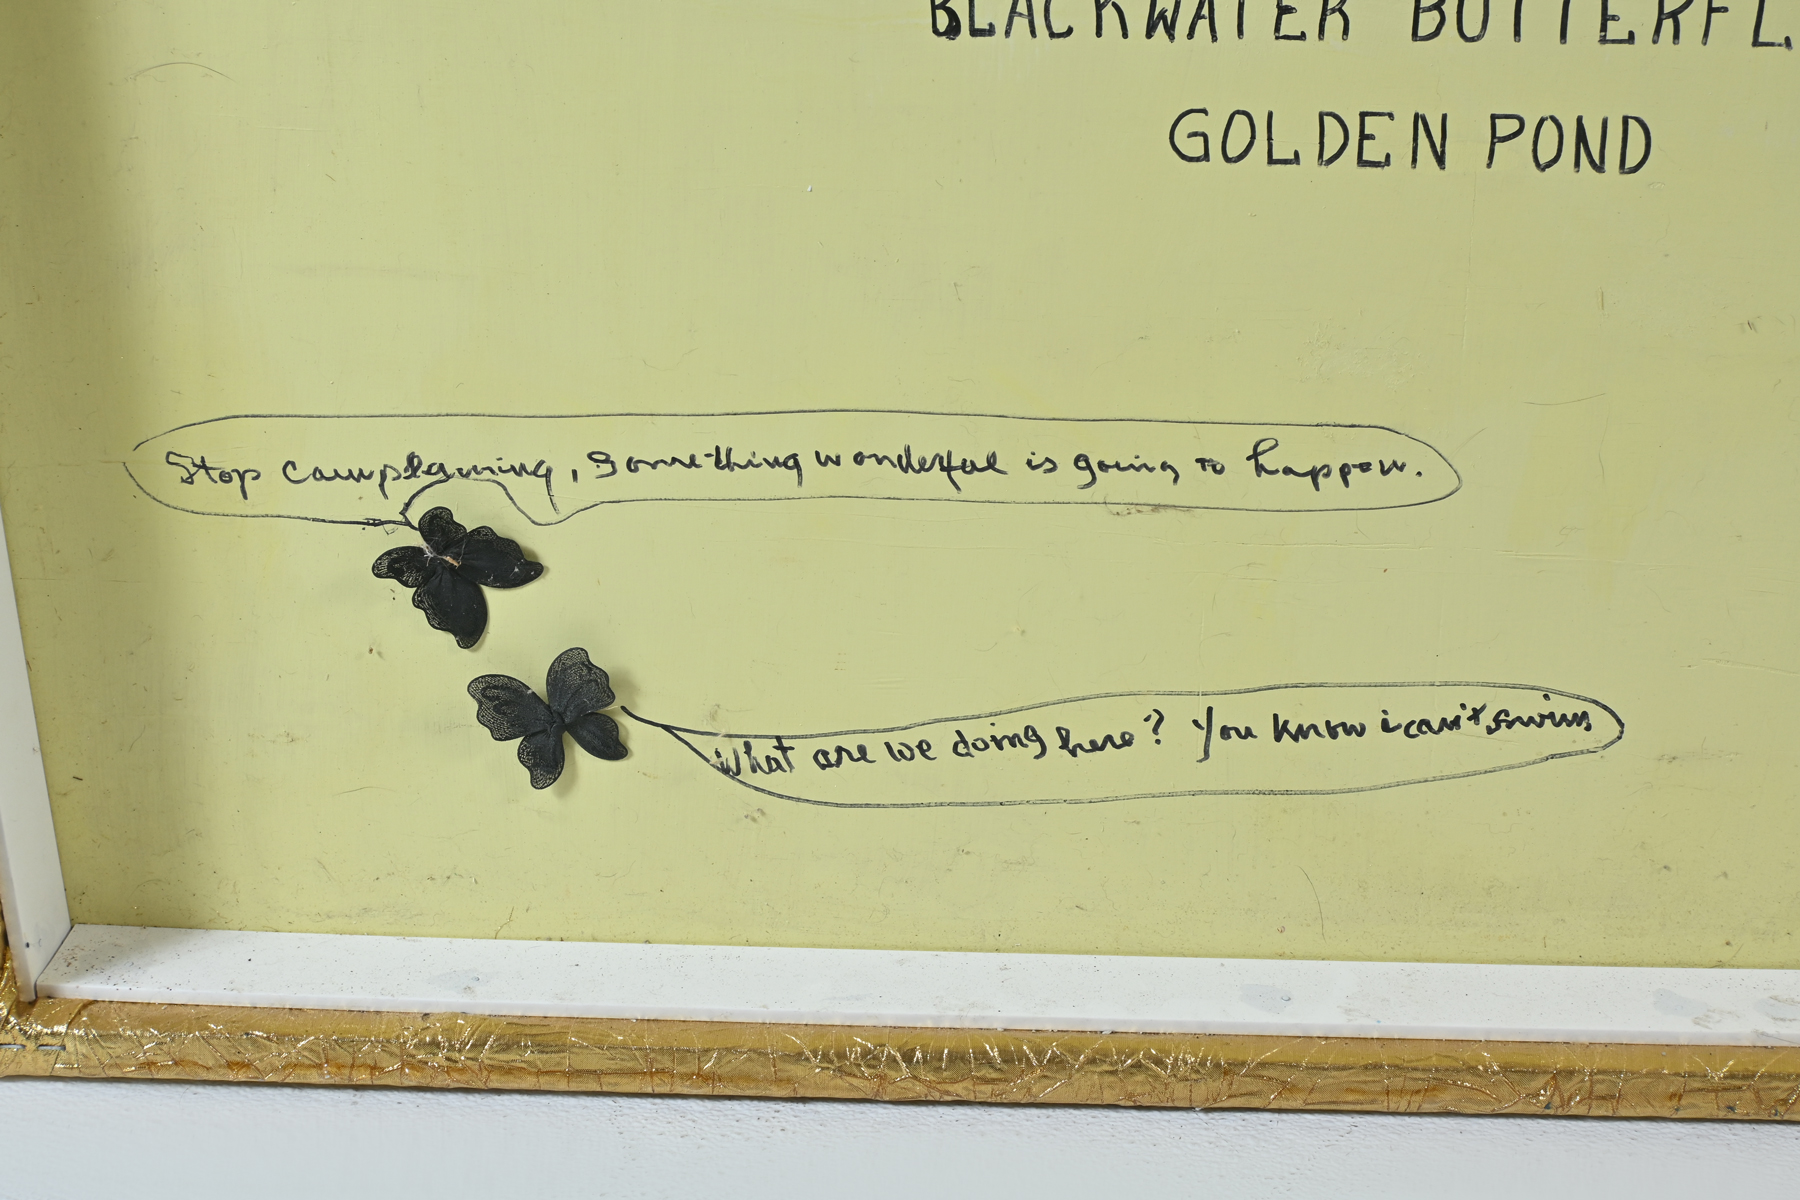 BLACKWATER BUTTERFL
GOLDEN POND
Stop complaining, Something wonderful is going to happen.
What are we doing here? You know i can't swim